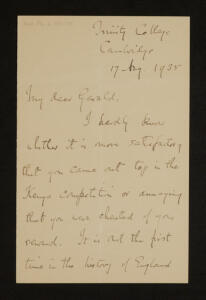 Trinity College
Cambridge
17 Aug. 1935
My dear Gerald,
I hardly know
whether it is more satisfactory
that you came out top in the
Kenya competition or annoying
that you were cheated of your
reward. It is not the first
time in the history of England